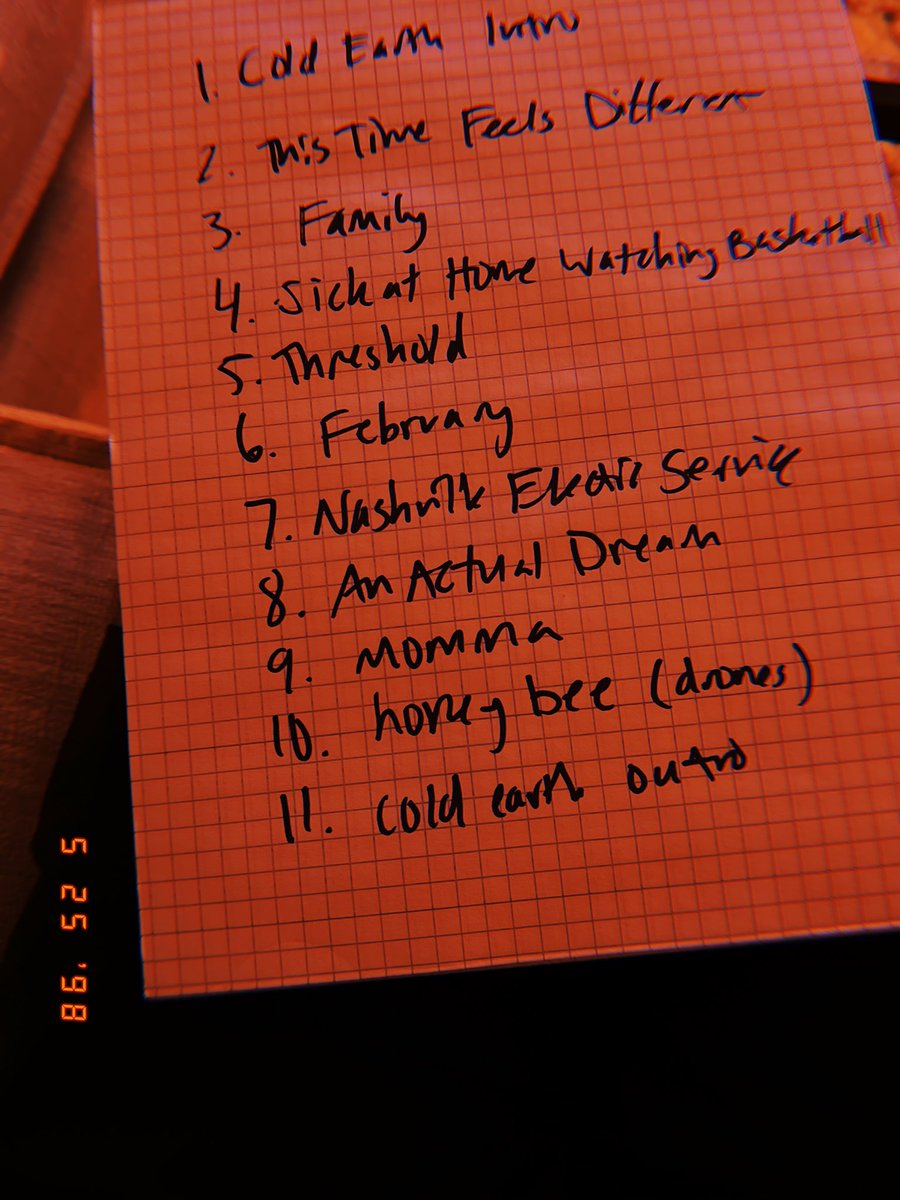 1. Cold Earth Intro
2. This Time Feels Different
3. Family
4. Sick at Home Watching Basketball
5. Threshold
6. February
7. Nashville Electric Service
8. An Actual Dream
9. Momma
10. honey bee (drones)
11. cold earth outro
5 25 '98